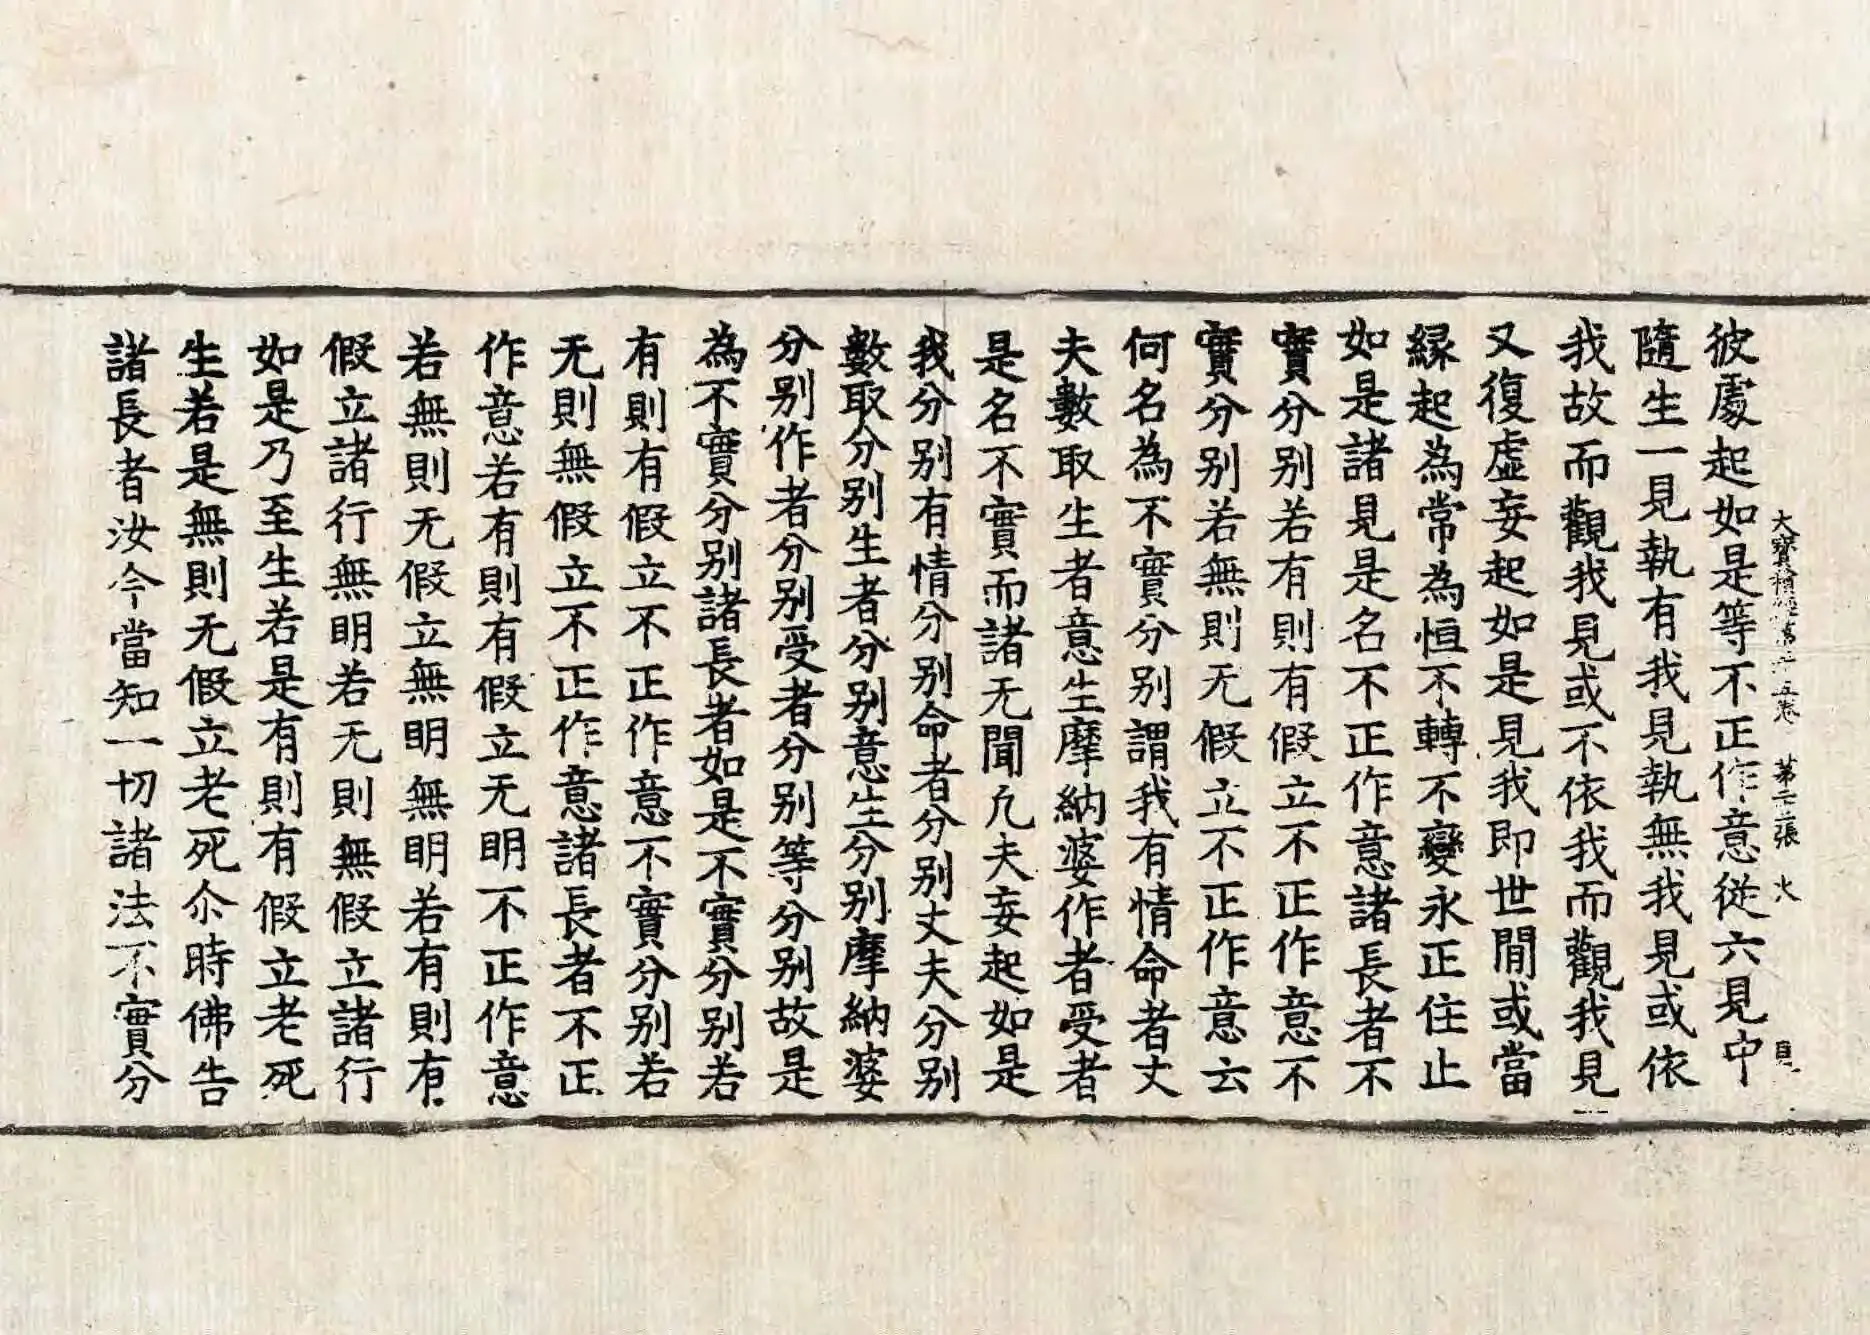 大寶積經第三十五卷 第二十二張 火
彼處起如是等不正作意從六見中
隨生一見執有我見執無我見或依
我故而觀我見或不依我而觀我見
又復虛妄起如是見我即世間或當
緣起為常為恒不轉不變永正住止
如是諸見是名不正作意諸長者不
實分別若有則有假立不正作意不
實分別若無則无假立不正作意云
何名為不實分別謂我有情命者丈
夫數取生者意生摩納婆作者受者
是名不實而諸无聞凡夫妄起如是
我分別有情分別命者分別丈夫分別
數取分別生者分別意生分別摩納婆
分別作者分別受者分別等分別故是
為不實分別諸長者如是不實分別若
有則有假立不正作意不實分別若
无則無假立不正作意諸長者不正
作意若有則有假立无明不正作意
若無則无假立無明無明若有則有
假立諸行無明若无則無假立諸行
如是乃至生若是有則有假立老死
生若是無則无假立老死尒時佛告
諸長者汝今當知一切諸法不實分